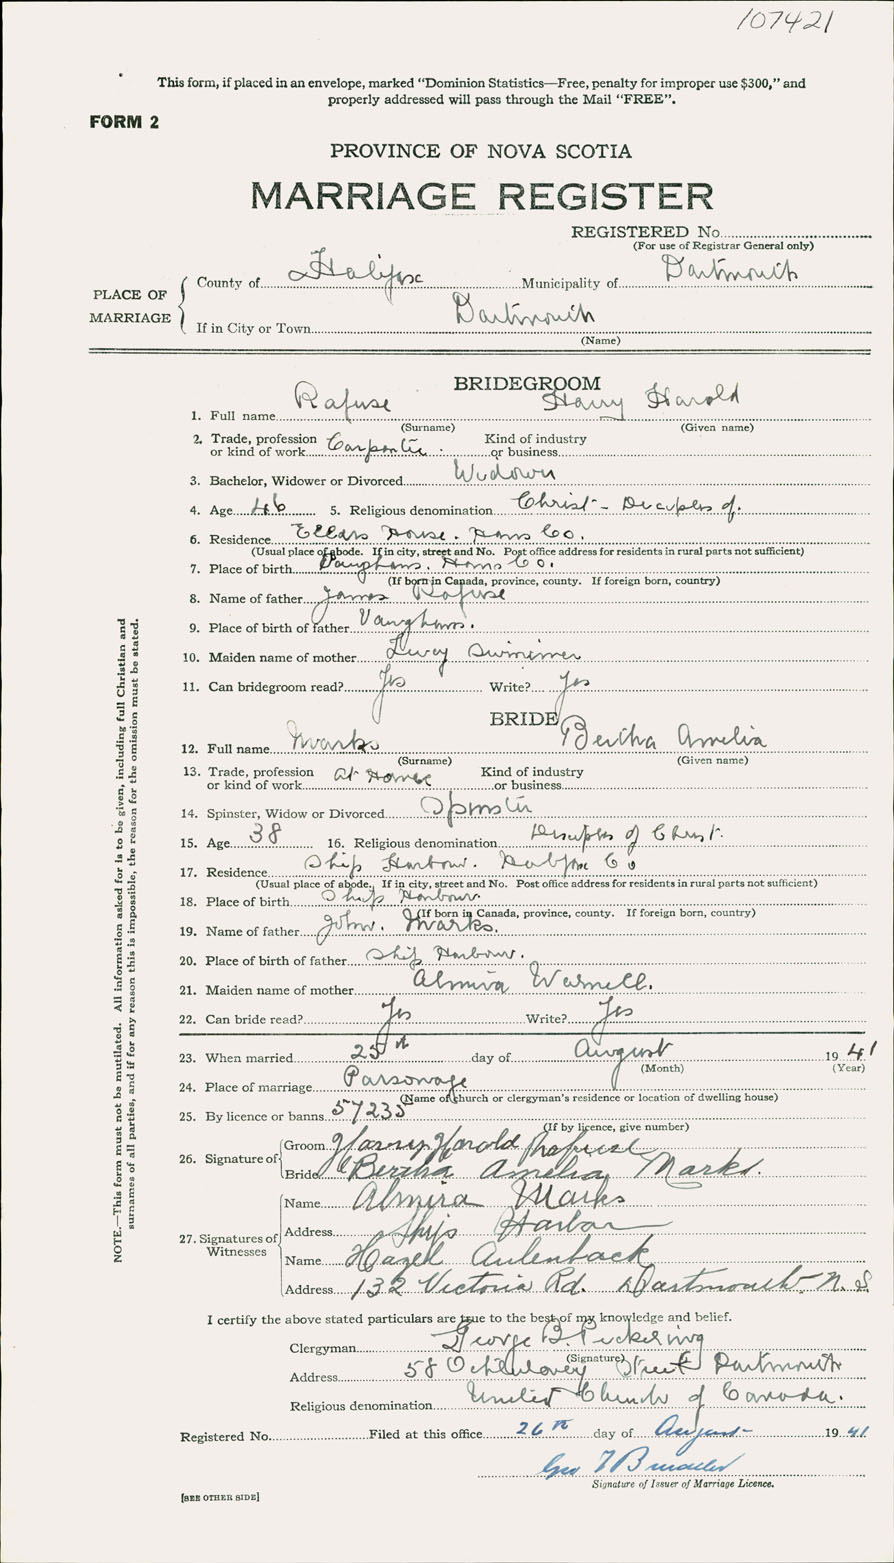 107421
This form, if placed in an envelope, marked "Dominion Statistics—Free, penalty for improper use $300," and
properly addressed will pass through the Mail "FREE".
FORM 2
PROVINCE OF NOVA SCOTIA
MARRIAGE REGISTER
REGISTERED No.
(For use of Registrar General only)
PLACE OF MARRIAGE
County of Halifax Municipality of Dartmouth
If in City or Town Dartmouth
(Name)
BRIDEGROOM
1. Full name Rafuse Harry Harold
(Surname) (Given name)
2. Trade, profession or kind of work Carpenter Kind of industry or business
3. Bachelor, Widower or Divorced Widower
4. Age 46 5. Religious denomination Christ - Disciples of.
6. Residence Ellers House. Hants Co.
(Usual place of abode. If in city, street and No. Post office address for residents in rural parts not sufficient)
7. Place of birth Vaughans. Hants Co.
(If born in Canada, province, county. If foreign born, country)
8. Name of father James Rafuse
9. Place of birth of father Vaughans.
10. Maiden name of mother Lucy Swinimer
11. Can bridegroom read? Yes Write? Yes
BRIDE
12. Full name Marks Bertha Amelia
(Surname) (Given name)
13. Trade, profession or kind of work At Home Kind of industry or business
14. Spinster, Widow or Divorced Spinster
15. Age 38 16. Religious denomination Disciples of Christ.
17. Residence Ship Harbour. Halifax Co
(Usual place of abode. If in city, street and No. Post office address for residents in rural parts not sufficient)
18. Place of birth Ship Harbour.
(If born in Canada, province, county. If foreign born, country)
19. Name of father John. Marks.
20. Place of birth of father Ship Harbour.
21. Maiden name of mother Almira Warnell.
22. Can bride read? Yes Write? Yes
23. When married 25th day of August 1941
(Month) (Year)
24. Place of marriage Parsonage
(Name of church or clergyman's residence or location of dwelling house)
25. By licence or banns 57235
(If by licence, give number)
26. Signature of Groom Harry Harold Rafuse
Bride Bertha Amelia Marks.
27. Signatures of Witnesses
Name Almira Marks
Address Ship Harbor
Name Hazel Aulenback
Address 132 Victoria Rd. Dartmouth N.S
I certify the above stated particulars are true to the best of my knowledge and belief.
Clergyman George B. Pickering
(Signature)
Address 58 Ochterloney Street Dartmouth
Religious denomination United Church of Canada.
Registered No. Filed at this office 26th day of August 1941
Geo
Signature of Issuer of Marriage Licence.
[SEE OTHER SIDE]
NOTE.—This form must not be mutilated. All information asked for is to be given, including full Christian and
surnames of all parties, and if for any reason this is impossible, the reason for the omission must be stated.